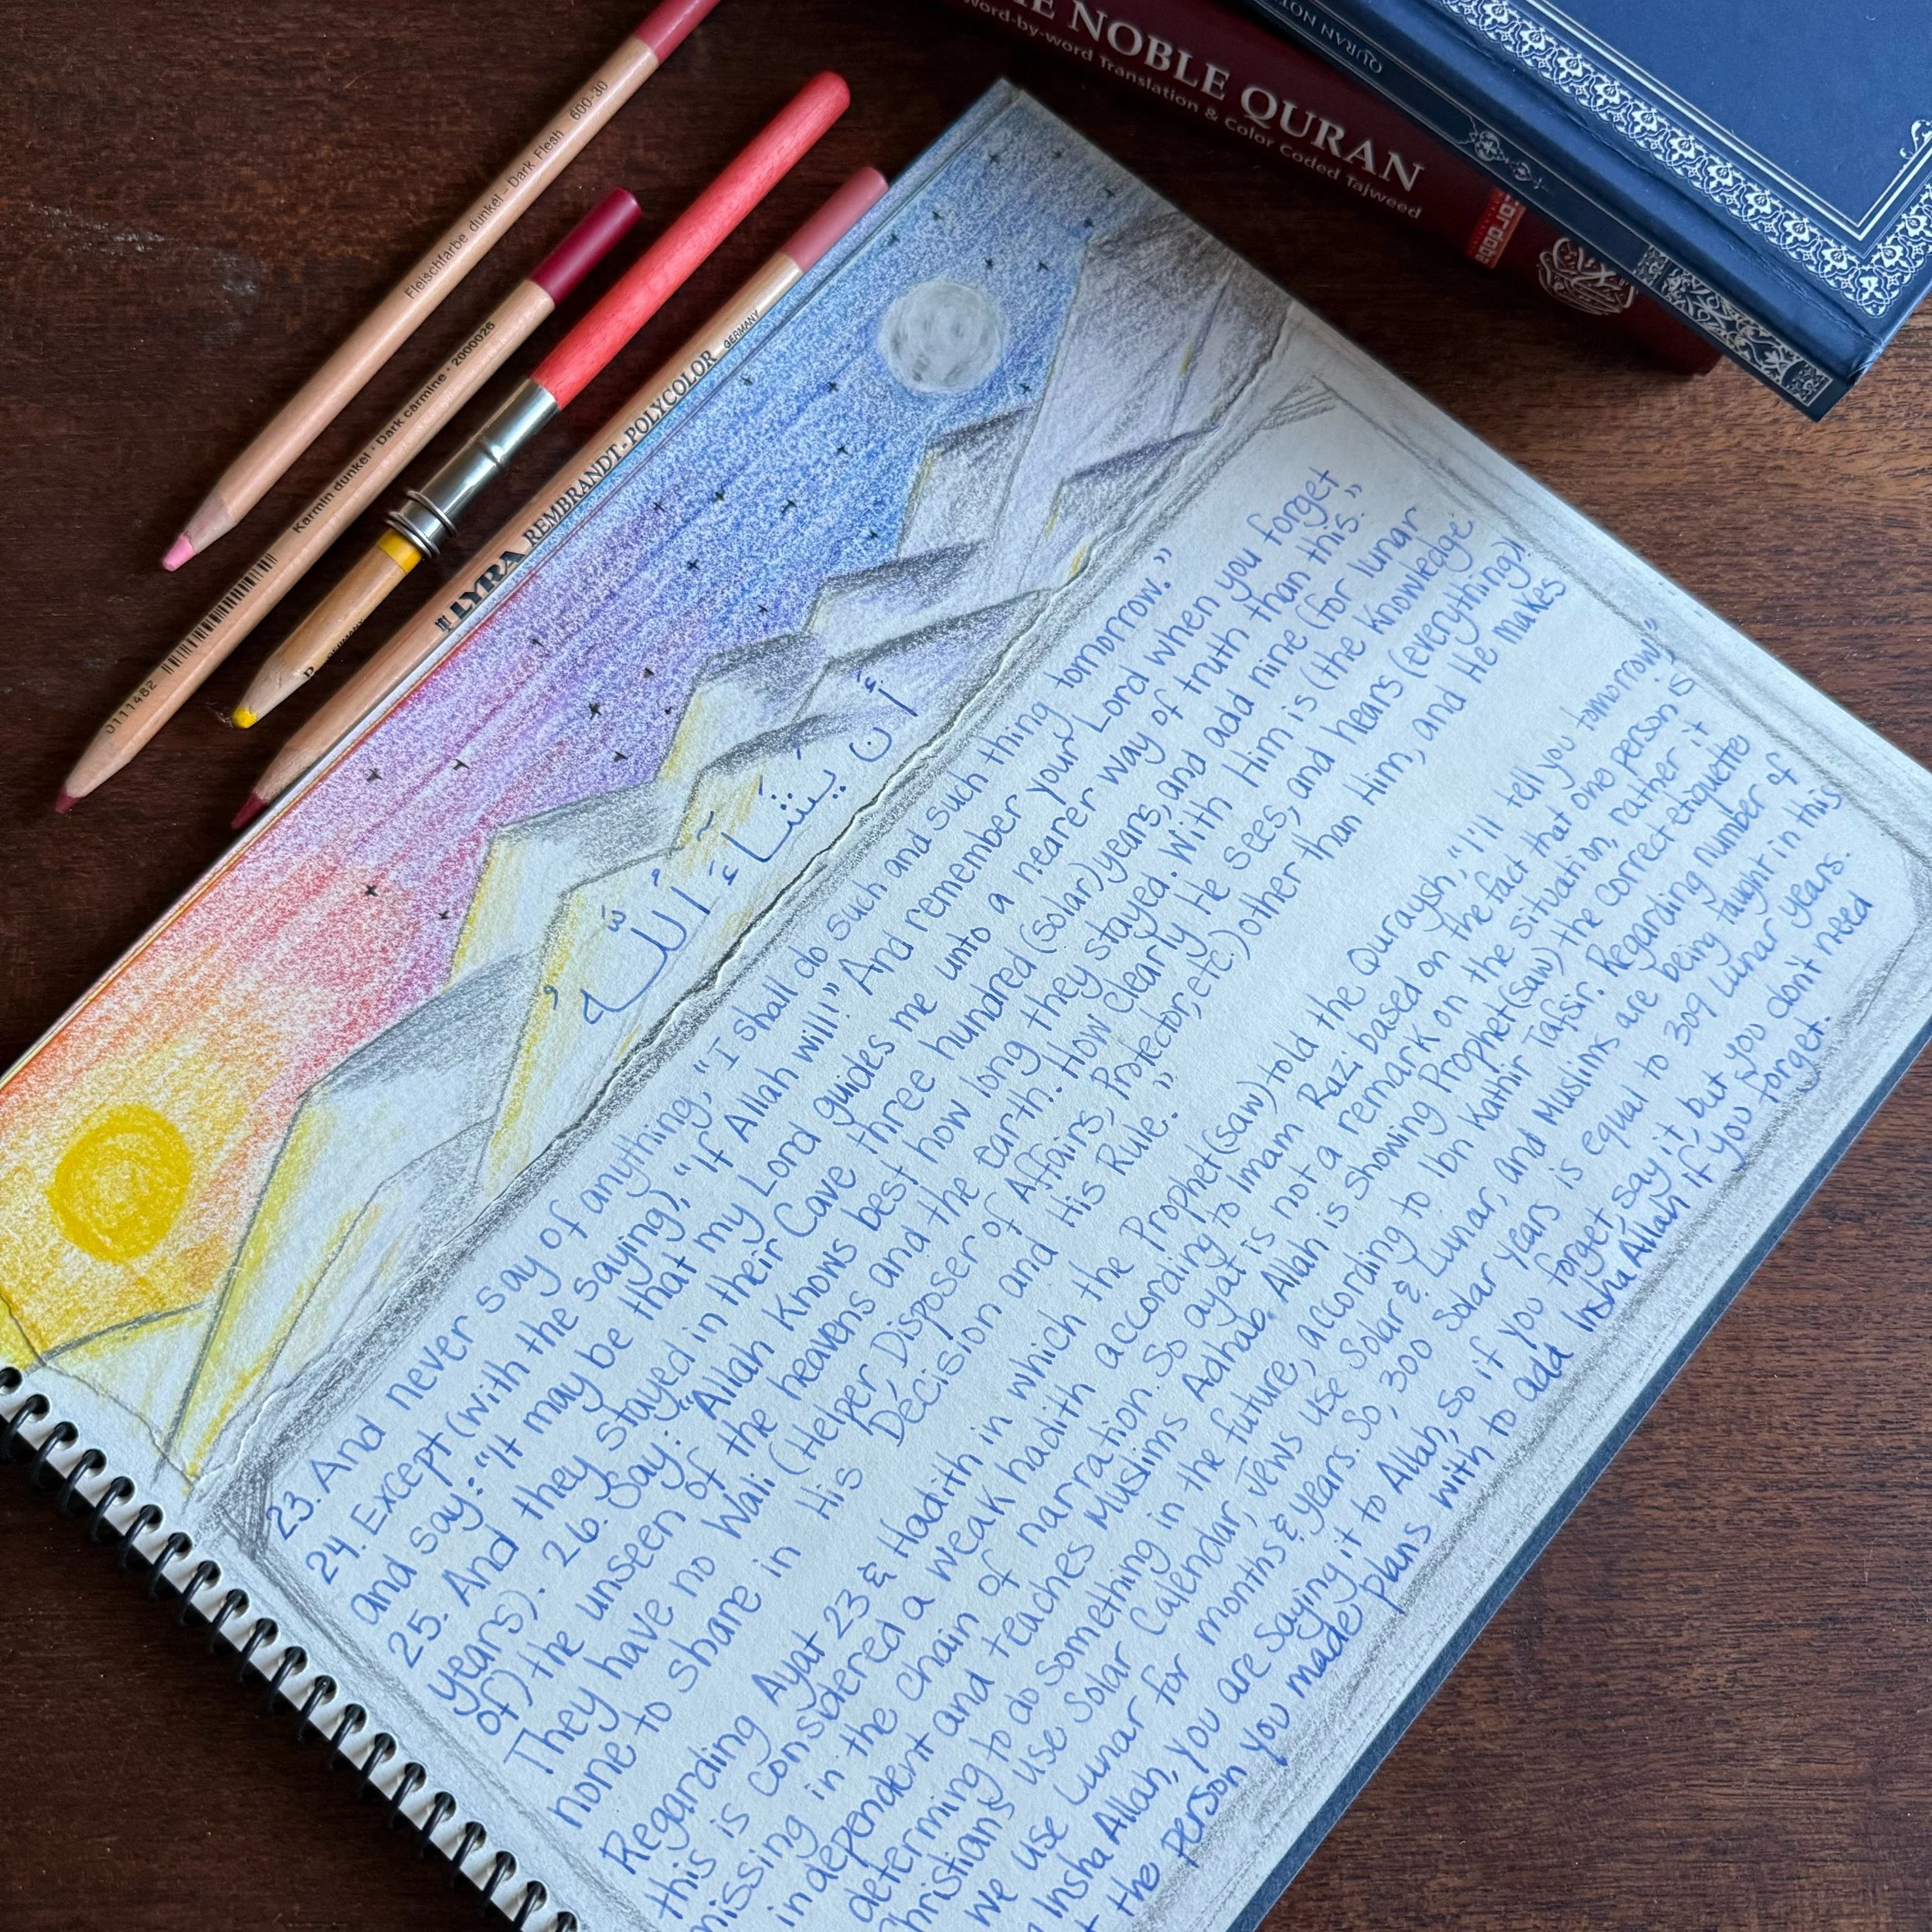 Fleischfarbe dunkel - Dark Flesh 600-30
Karmin dunkel · Dark carmine · 2000026
0111482
LYRA REMBRANDT-POLYCOLOR GERMANY
NOBLE QURAN
Word-by-word Translation & Color Coded Tajweed
QURAN
أَن يَشَآءَ اللَّهُ
23. And never say of anything, "I shall do such and such thing tomorrow."
24. Except (with the saying), "If Allah will!" And remember your Lord when you forget
and say: "It may be that my Lord guides me unto a nearer way of truth than this."
25. And they stayed in their Cave three hundred (solar) years, and add nine (for lunar
years). 26. Say: "Allah Knows best how long they stayed. With Him is (the Knowledge
of) the unseen of the heavens and the earth. How clearly He sees, and hears (everything)!
They have no Wali (Helper, Disposer of Affairs, Protector, etc.) other than Him, and He makes
none to share in His Decision and His Rule."
Regarding Ayat 23 & Hadith in which the Prophet(saw) told the Quraysh, "I'll tell you tomorrow,"
this is considered a weak hadith according to Imam Razi based on the fact that one person is
missing in the chain of narration. So ayat is not a remark on the situation, rather it
independent and teaches Muslims Adhab. Allah is showing Prophet(saw) the correct etiquette
determing to do something in the future, according to Ibn Kathir Tafsir. Regarding number of
Christians use Solar Calendar, Jews use Solar & Lunar, and Muslims are being taught in this
we use Lunar for months & years. So, 300 Solar years is equal to 309 Lunar years.
Insha Allah, you are saying it to Allah, so if you forget, say it, but you don't need
the person you made plans with to add Insha Allah if you forget.